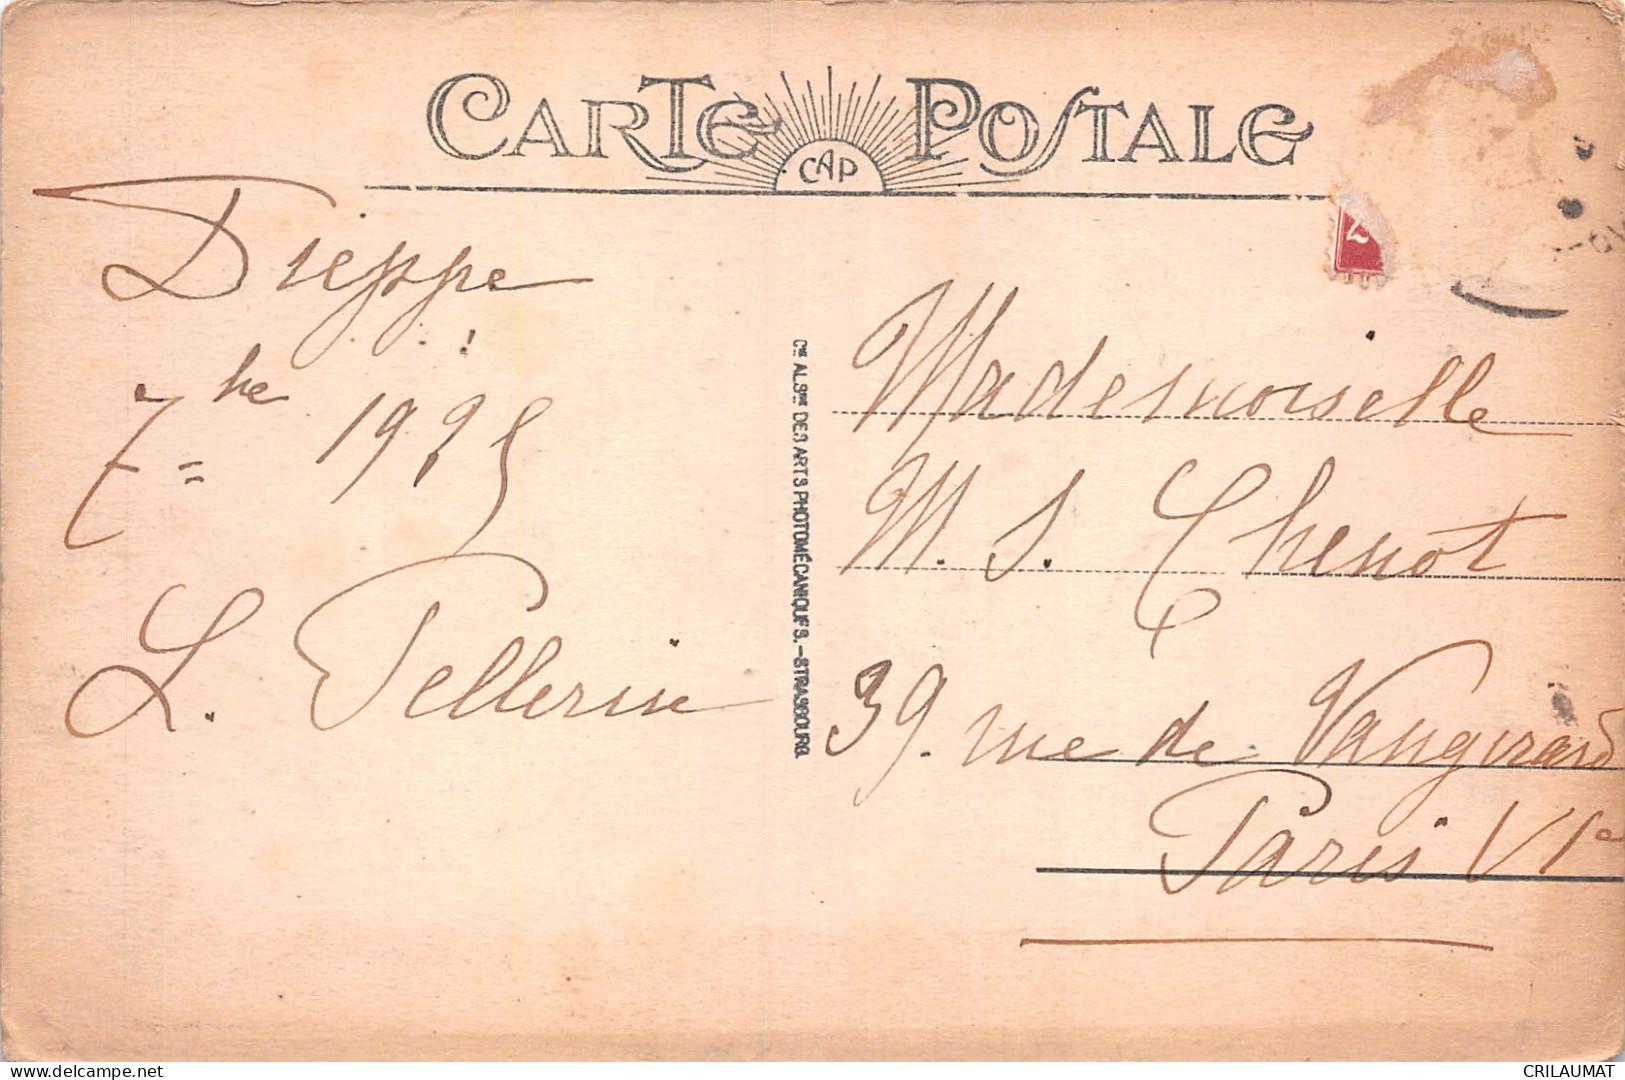 CARTE POSTALE
CAP
Dieppe
7bre 1925
L. Pellerin
Cie ALSnne DES ARTS PHOTOMÉCANIQUES.-STRASBOURG
Mademoiselle
M. S. Chenot
39. rue de Vaugirard
Paris VIe
CRILAUMAT
delcampe.net